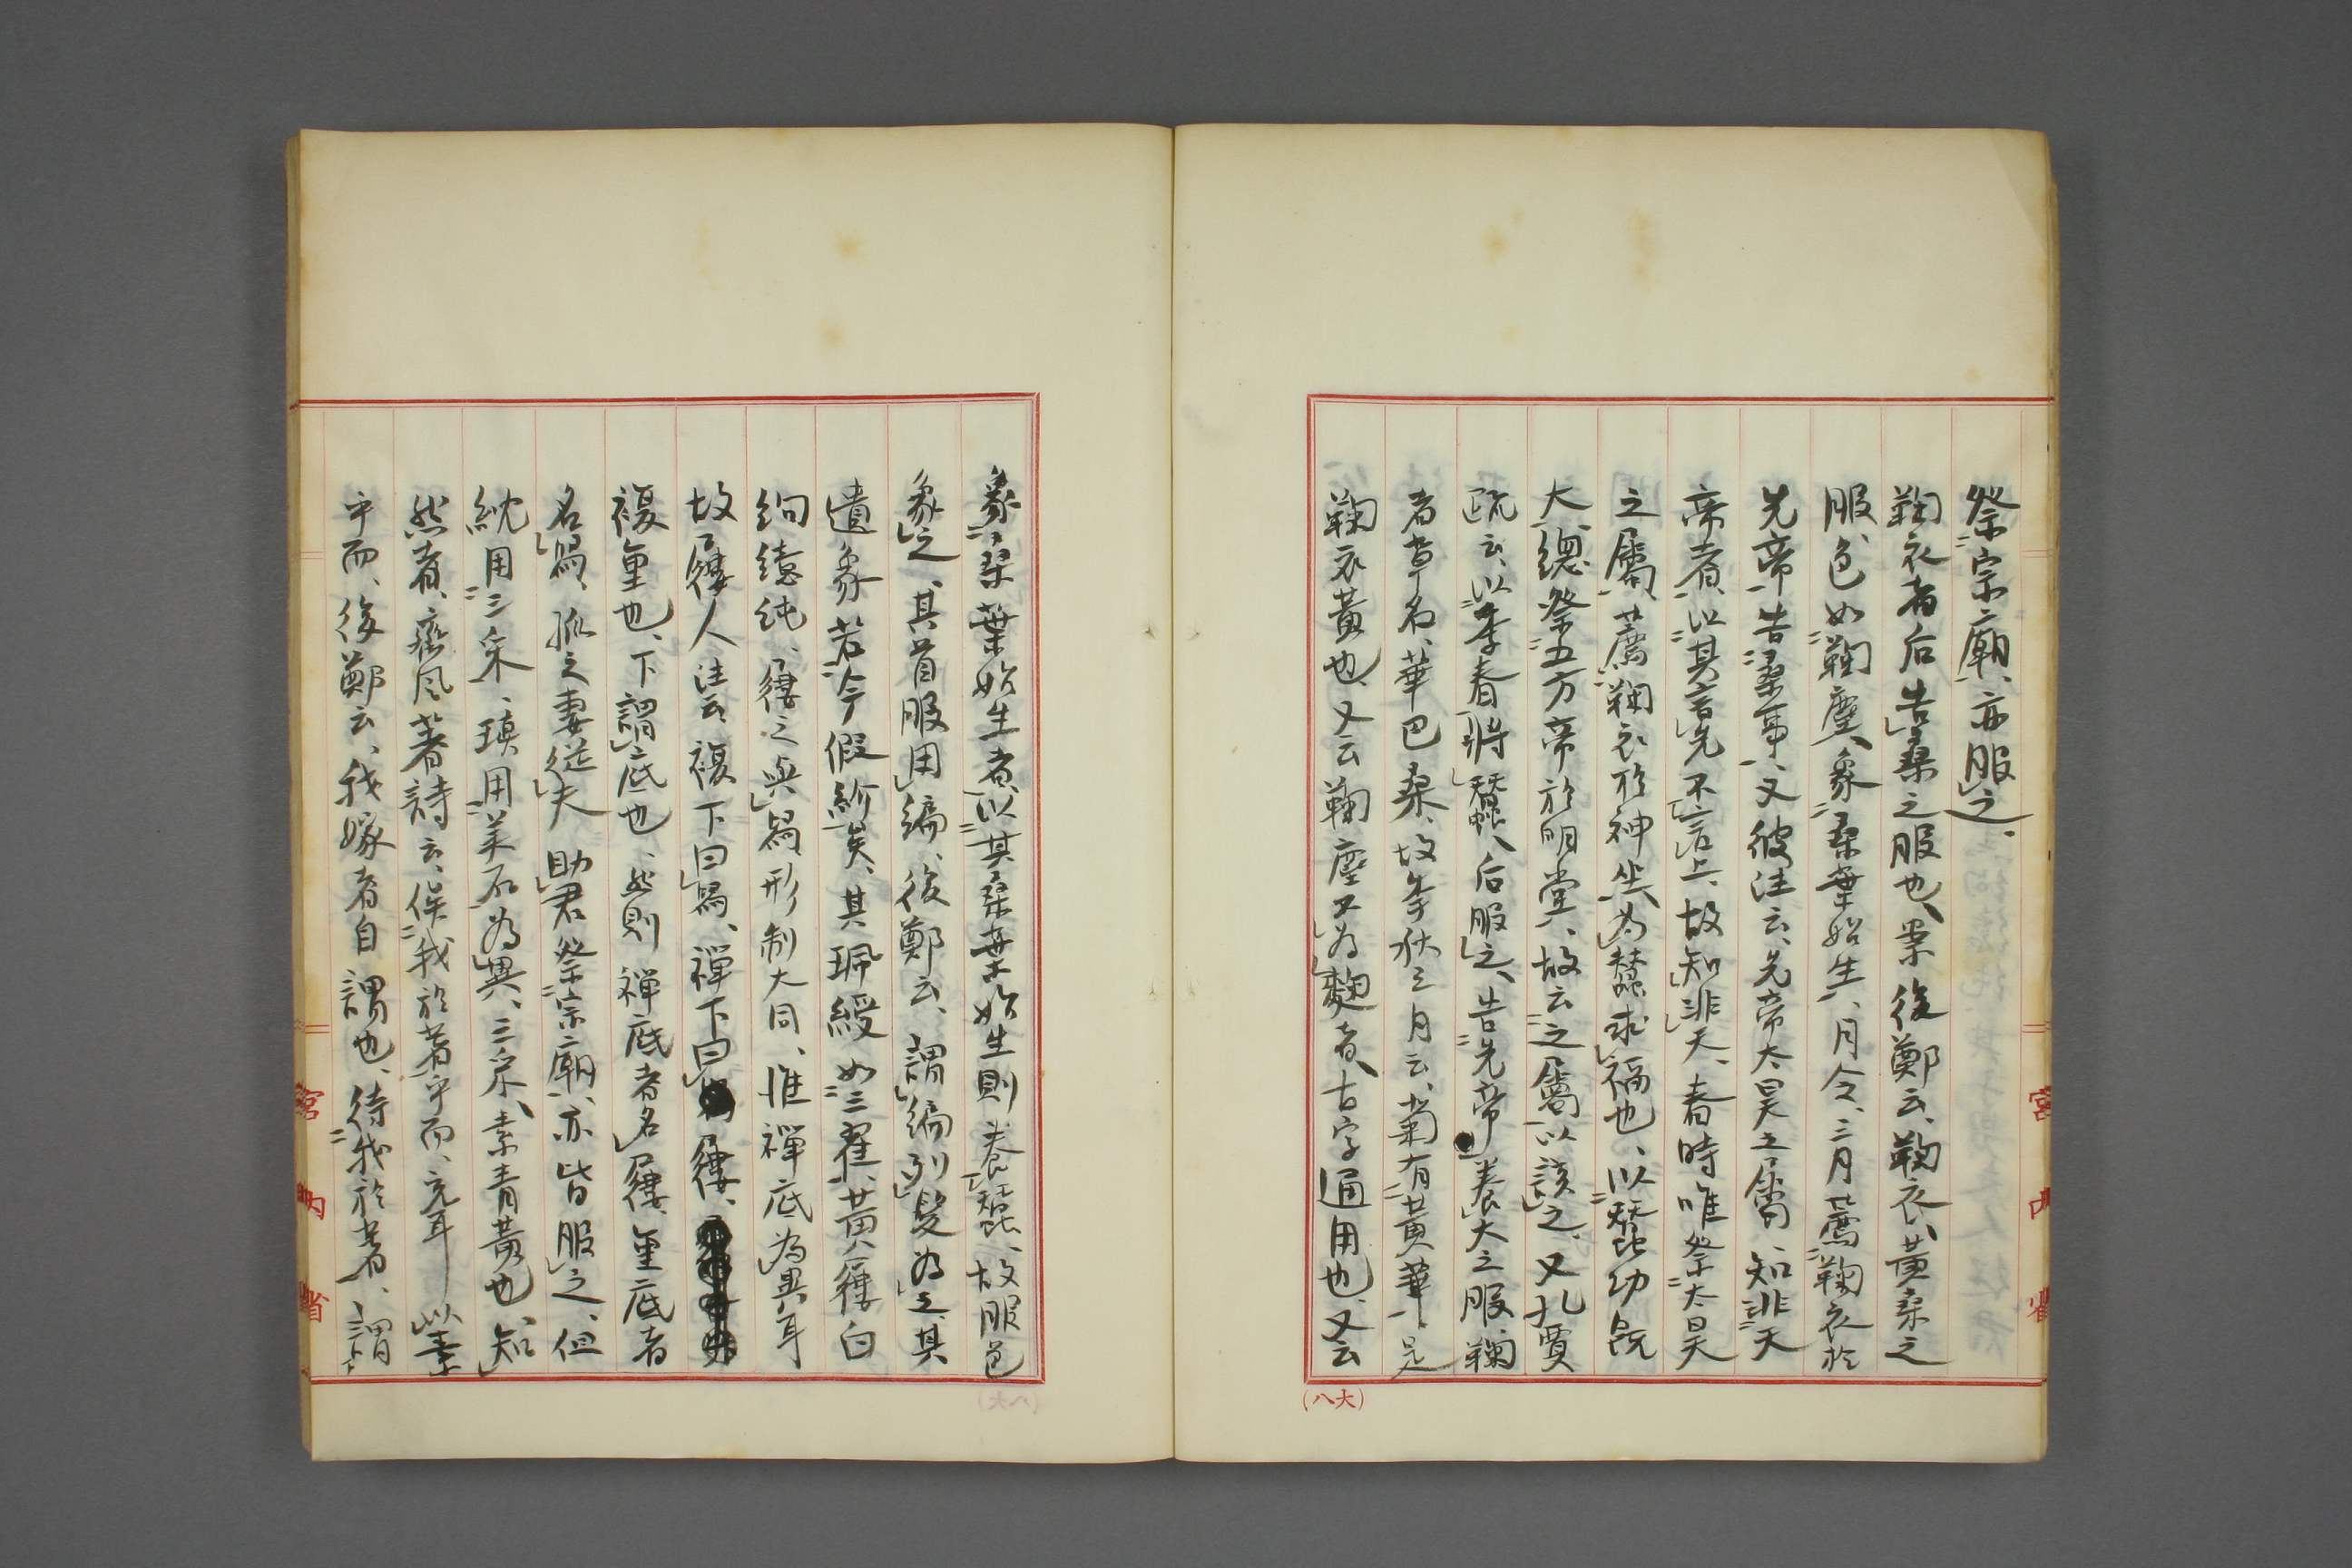 祭宗廟、亦服之、
鞠衣者后告桑之服也、案後鄭云、鞠衣、黄桑之
服、色如鞠塵、象桑葉始生、月令、三月薦鞠衣於
先帝、告桑事、又彼注云、先帝太昊之屬、知非天
帝者、以其言先不言上、故知非天、春時唯祭太昊
之屬、薦鞠衣於神坐、為蠶求福也、以蠶功既
大、總祭五方帝於明堂、故云之屬以該之、又孔賈
疏云、以季春將蠶、后服之、告先帝養大之服、鞠
者草名、華色桑、故季秋之月云、菊有黄華、是
鞠衣黄也、又云鞠塵不為麴者、古字通用也、又云
象桑葉始生者、以其桑葉始生則養蠶、故服色
象之、其首服用編、後鄭云、謂編列髮為之、其
遺象若今假紒矣、其珮綬如三翟、黄屨白
絇繶純、屨之與舃形制大同、惟禪底為異耳
故屨人注云、複下曰舃、禪下曰屨、
複重也、下謂底也、然則禪底者名屨、重底者
名舃、孤之妻從夫助君祭宗廟、亦皆服之、但
紞用三采、瑱用美石為異、三采、素青黄也、知
然者、齊風著詩云、俟我於著乎而、充耳以素
乎而、後鄭云、我嫁者自謂也、待我於著、謂
宮内省
宮内省
(八大)